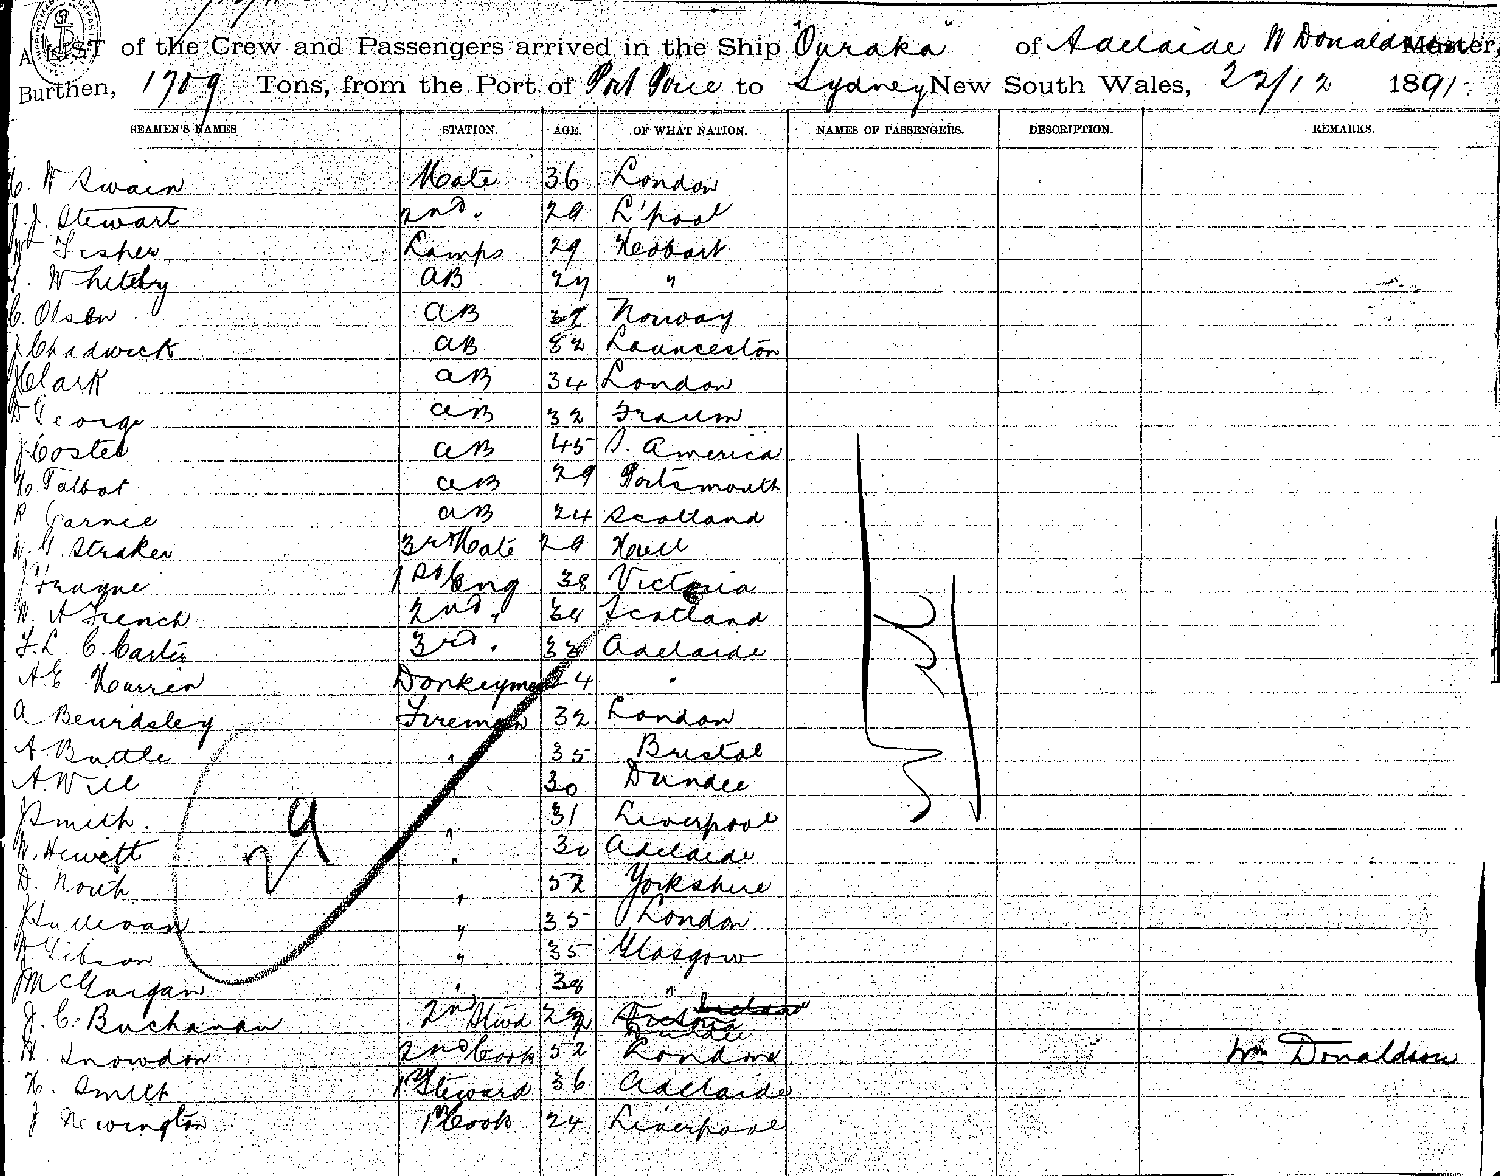 A LIST of the Crew and Passengers arrived in the Ship "Ouraka" of Adelaide W Donaldson Master,
Burthen, 1709 Tons, from the Port of Port Pirie to Sydney New South Wales, 22/12 1891.
SEAMEN'S NAMES STATION. AGE. OF WHAT NATION. NAMES OF PASSENGERS. DESCRIPTION. REMARKS.
W Swain Mate 36 London
J. J. Stewart 2nd. 29 L'pool
Fisher Lamps 29 Hobart
Whiteby AB 27 "
C. Olsen AB Norway
J Chadwick AB 32 Launceston
Clark AB 34 London
George AB 32
J Coster AB 45 S. America
Talbot AB 29 Portsmouth
AB 24 Scotland
Straker 3rd Mate 29 Hull
1st Eng 38 Victoria
W. A French 2nd. Scotland
F. L. C. Carter 3rd. 33 Adelaide
A E Warren Donkeyman 24 "
A Beardsley Fireman 32 London
A Buttle " 35 Bristol
A. Will 30 Dundee
J Smith. " 31 Liverpool
W. Hewett " 30 Adelaide
D. North " 52 Yorkshire
J Sullivan " 35 London
Gibson " 35 Glasgow
J McGurgan " 38 "
J. C. Buchanan 2nd Stwd Dundee
Snowdon 2nd Cook 52 London Wm Donaldson
H. Smith 1st Steward 36 Adelaide
J Newington 1st Cook 24 Liverpool
29